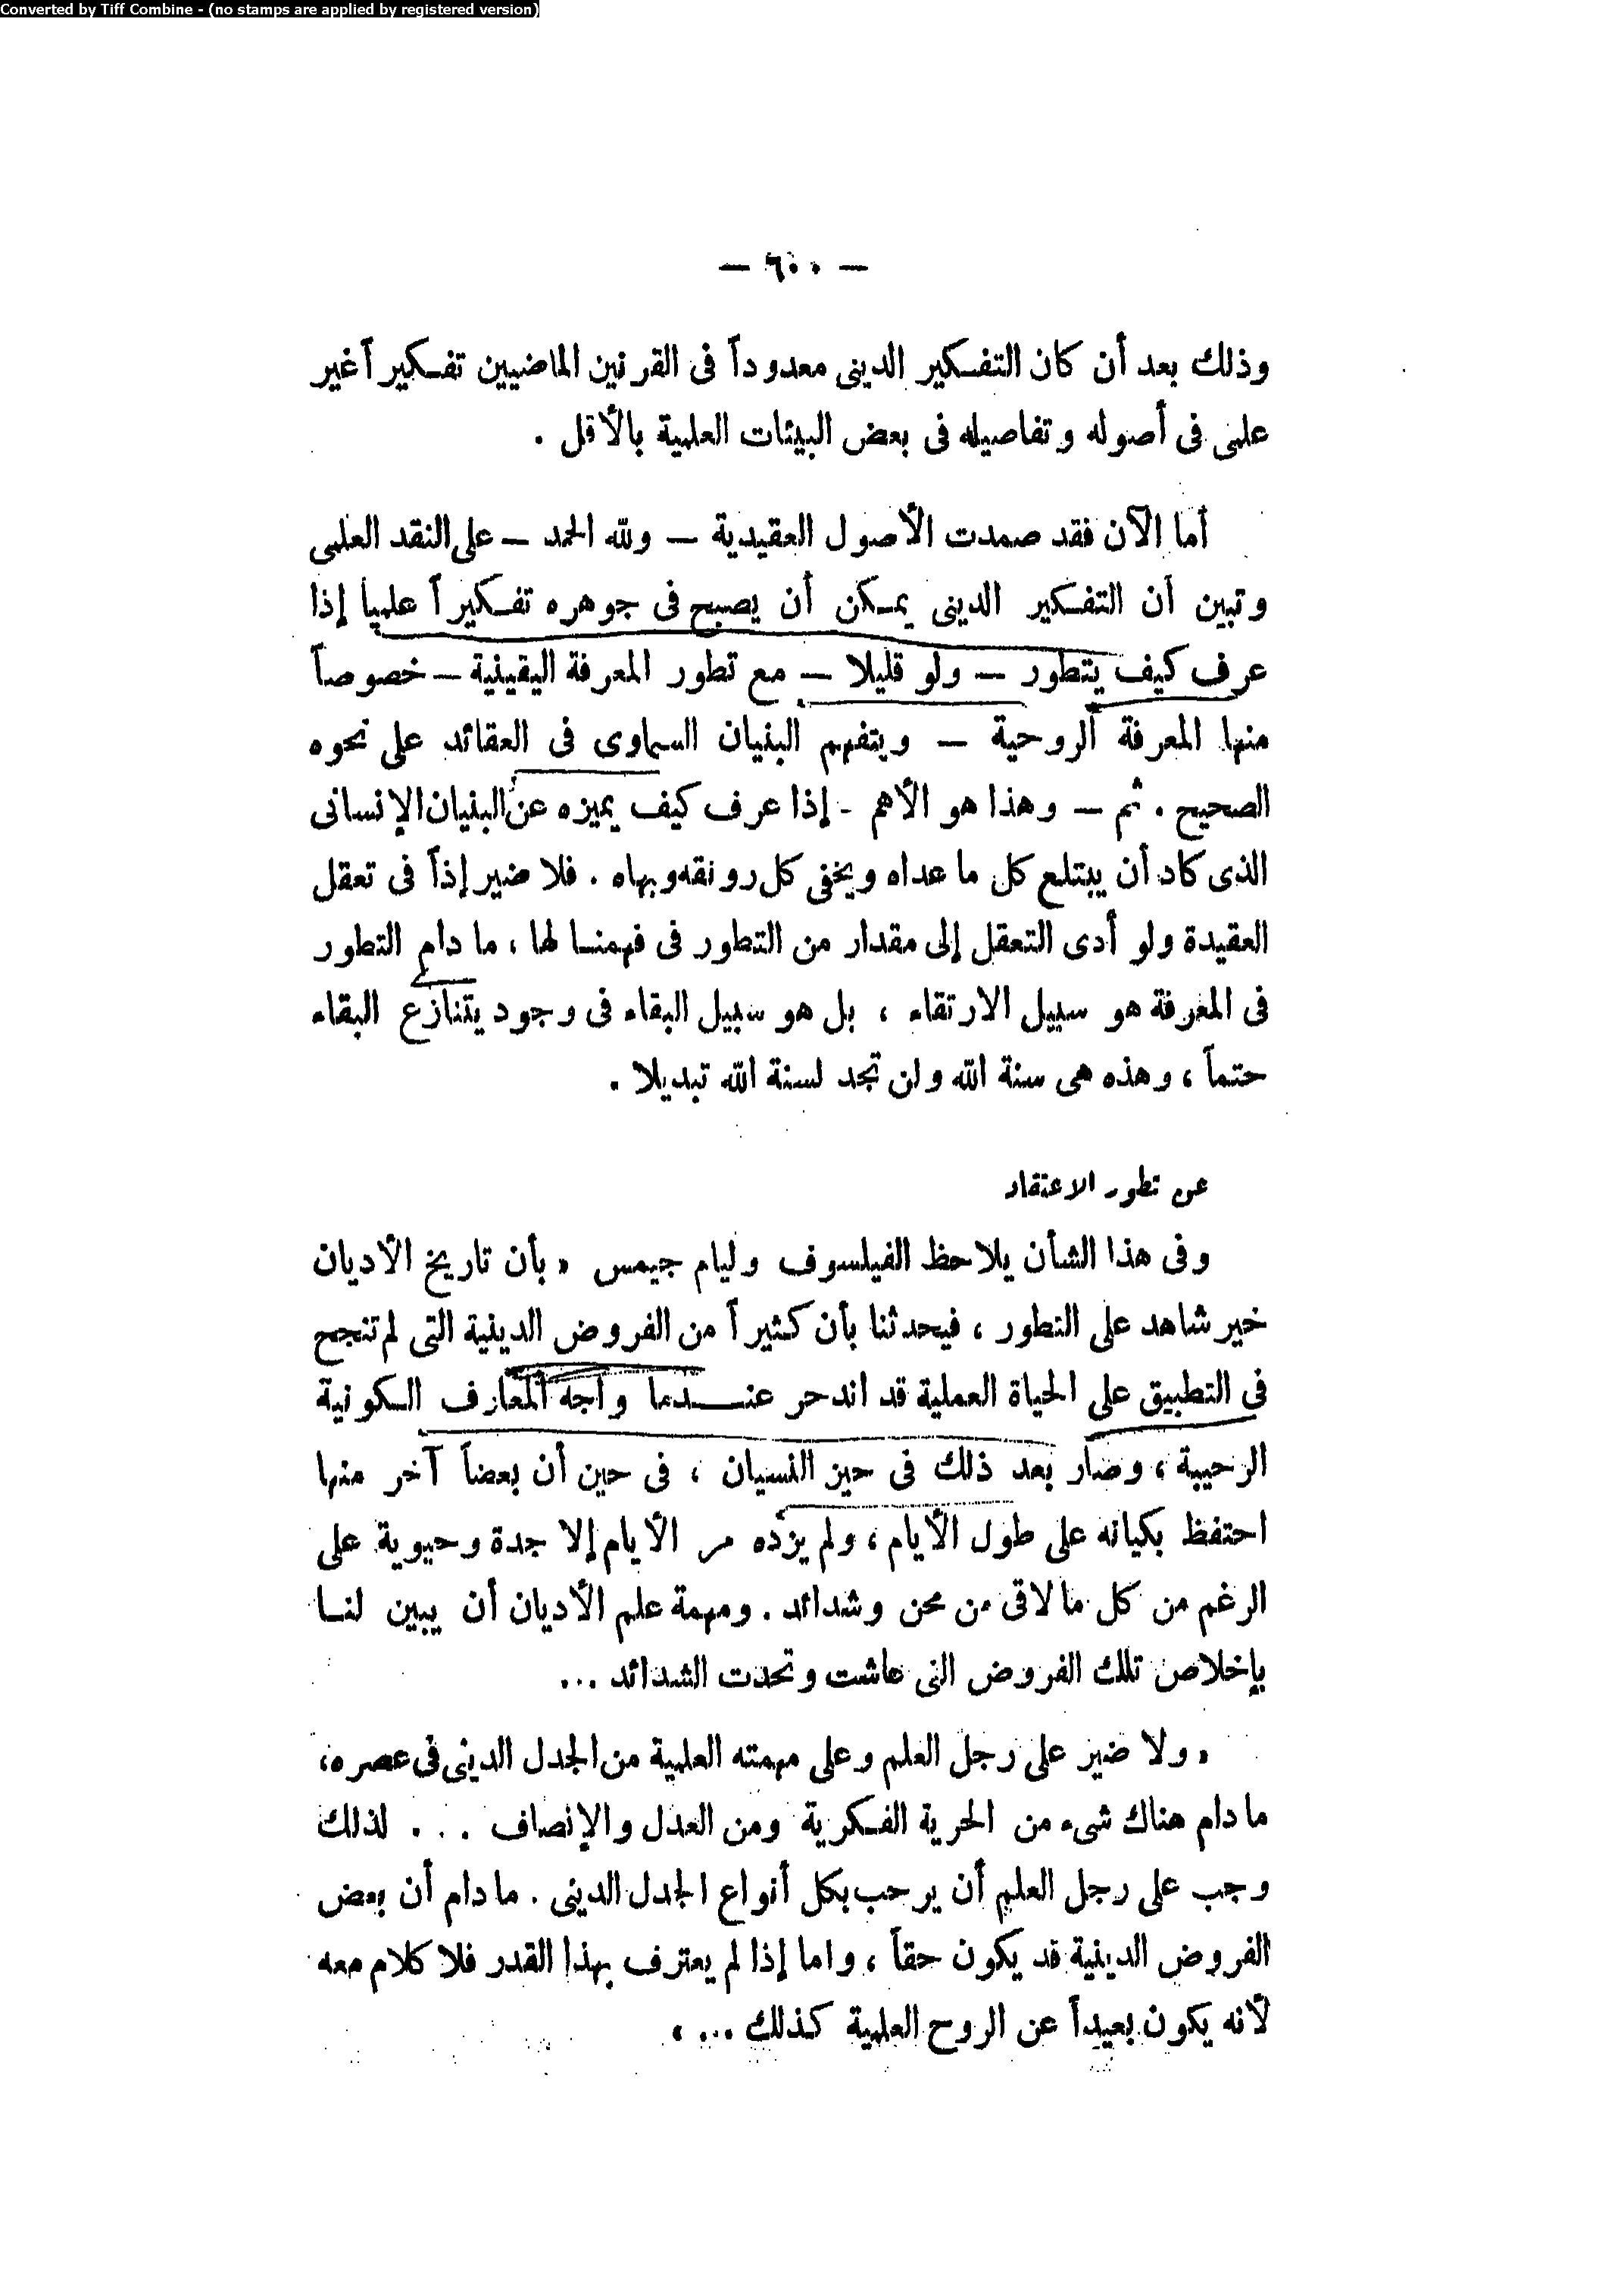 Converted by Tiff Combine - (no stamps are applied by registered version)
— ٦٠٠ —
وذلك بعد أن كان التفكير الدينى معدوداً فى القرنين الماضيين تفكيراً غير
علمى فى أصوله وتفاصيله فى بعض البيئات العلمية بالأقل .
أما الآن فقد صمدت الأصول العقيدية — ولله الحمد — على النقد العلمى
وتبين أن التفكير الدينى يمكن أن يصبح فى جوهره تفكيراً علميا إذا
عرف كيف يتطور — ولو قليلا — مع تطور المعرفة اليقينية — خصوصاً
منها المعرفة الروحية — ويتفهم البنيان السماوى فى العقائد على نحوه
الصحيح . ثم — وهذا هو الأهم - إذا عرف كيف يميزه عن البنيان الإنسانى
الذى كاد أن يبتلع كل ما عداه ويخفى كل رونقه وبهاه . فلا ضير إذاً فى تعقل
العقيدة ولو أدى التعقل إلى مقدار من التطور فى فهمنا لها ، ما دام التطور
فى المعرفة هو سبيل الارتقاء ، بل هو سبيل البقاء فى وجود يتنازع البقاء
حتماً ، وهذه هى سنة الله ولن تجد لسنة الله تبديلا .
عن تطور الاعتقاد
وفى هذا الشأن يلاحظ الفيلسوف وليام جيمس « بأن تاريخ الأديان
خير شاهد على التطور ، فيحدثنا بأن كثيراً من الفروض الدينية التى لم تنجح
فى التطبيق على الحياة العملية قد اندحر عندما واجه المعارف الكونية
الرحيبة ، وصار بعد ذلك فى حيز النسيان ، فى حين أن بعضاً آخر منها
احتفظ بكيانه على طول الأيام ، ولم يزده مر الأيام إلا جدة وحيوية على
الرغم من كل ما لاقى من محن وشدائد . ومهمة علم الأديان أن يبين لنا
بإخلاص تلك الفروض التى عاشت وتحدت الشدائد ...
« ولا ضير على رجل العلم وعلى مهمته العلمية من الجدل الدينى فى عصره ،
ما دام هناك شىء من الحرية الفكرية ومن العدل والإنصاف ... لذلك
وجب على رجل العلم أن يرحب بكل أنواع الجدل الدينى . ما دام أن بعض
الفروض الدينية قد يكون حقاً ، واما إذا لم يعترف بهذا القدر فلا كلام معه
لأنه يكون بعيداً عن الروح العلمية كذلك ... »